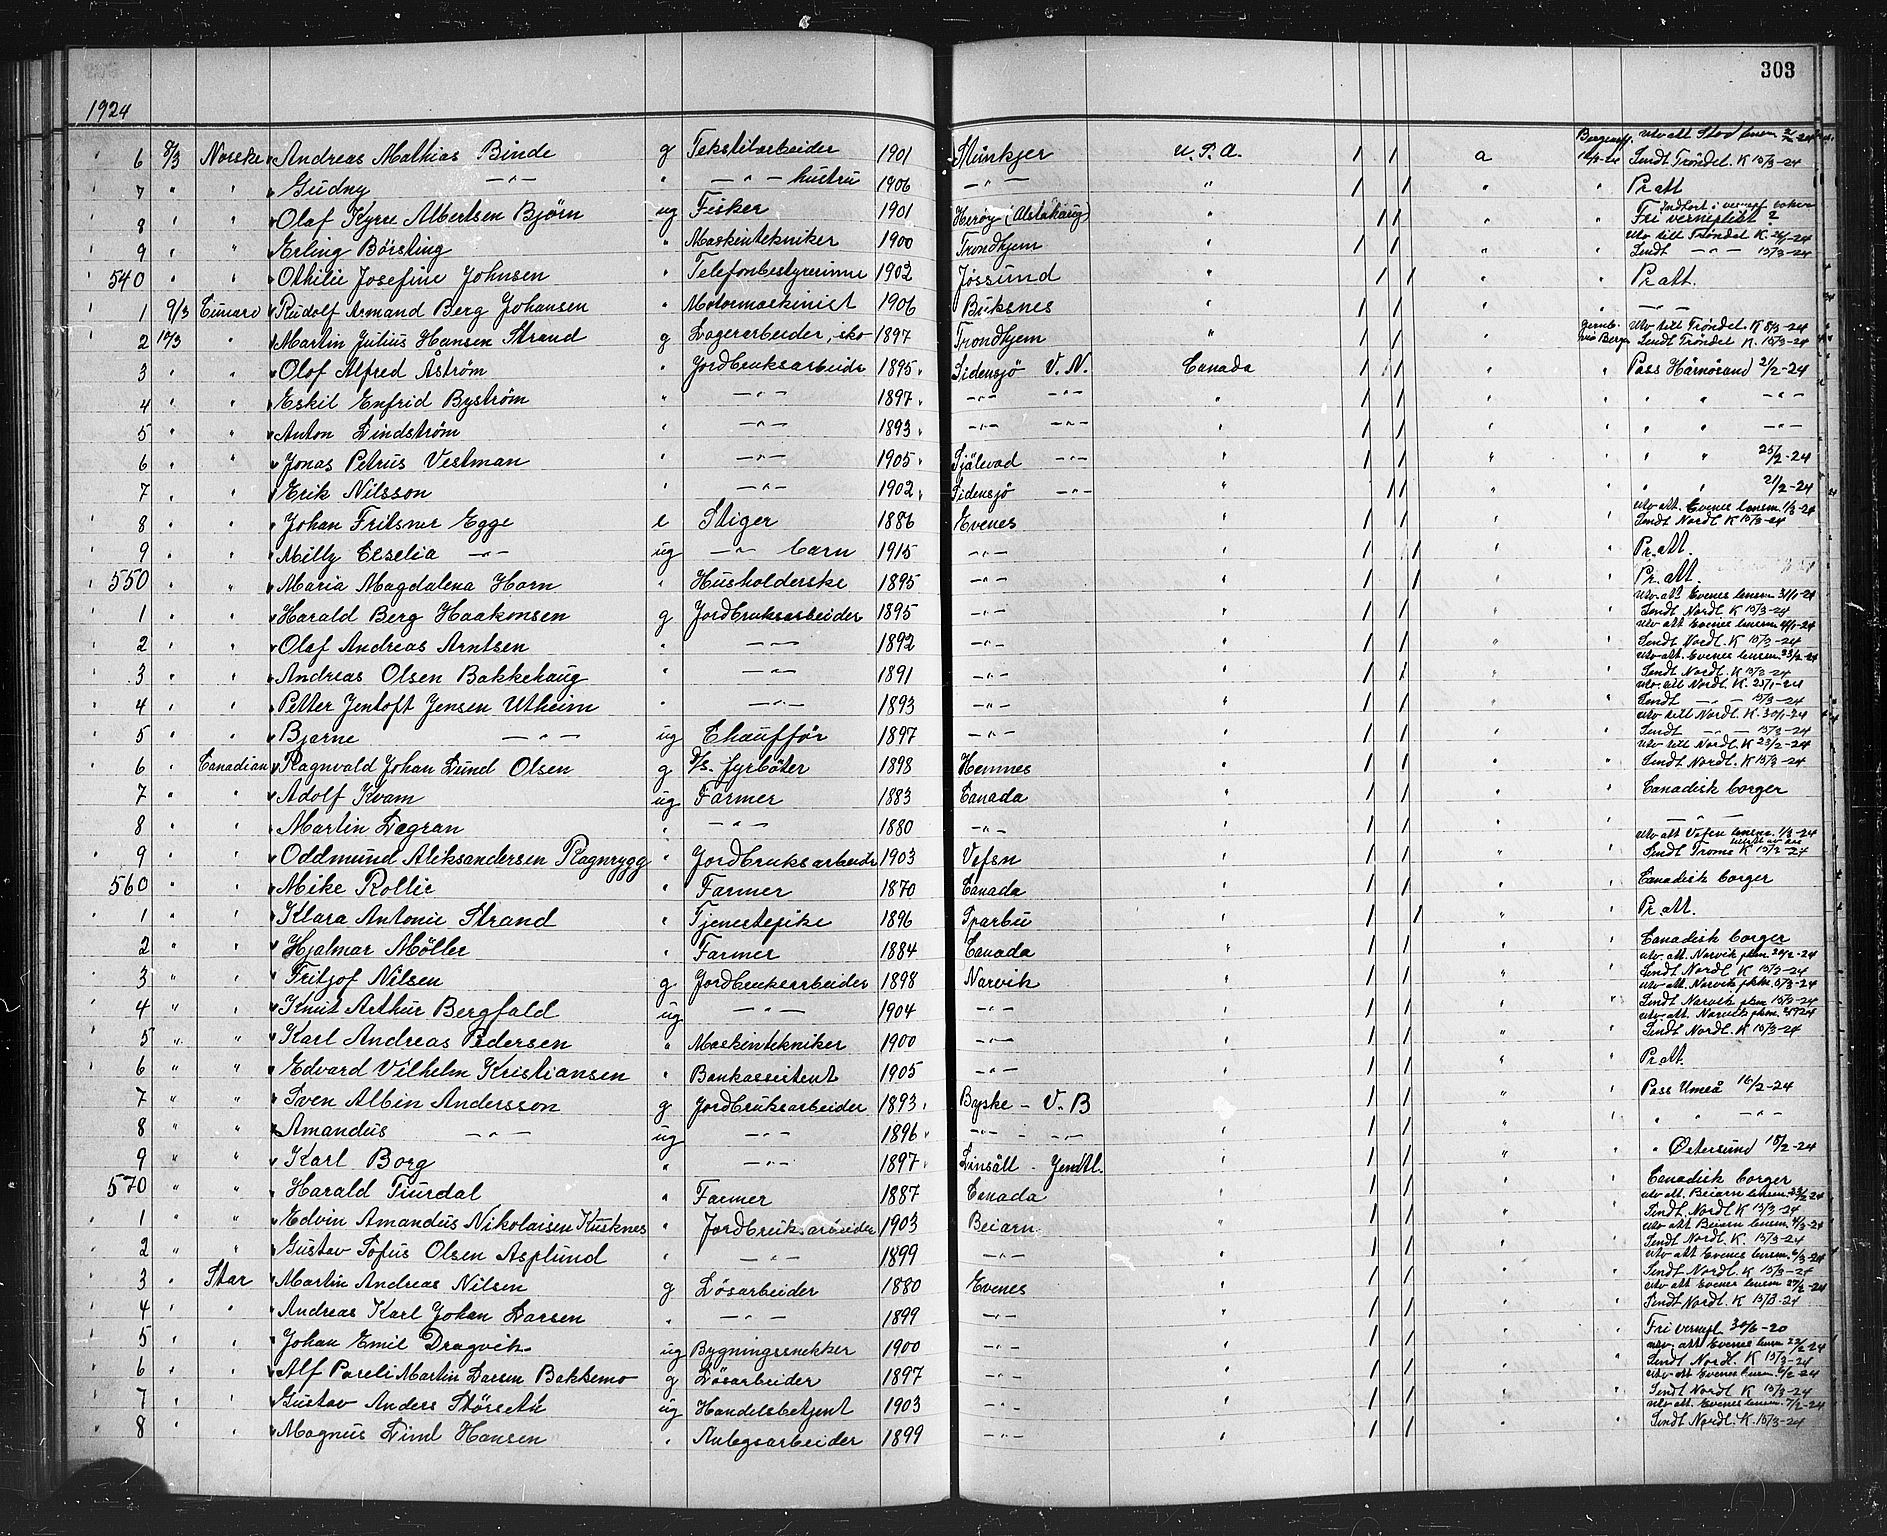 303
1924
6 8/3 Norske Andreas Mathias Binde g Tekstilarbeider 1901 Stenkjer U.S.A. / / a Sendt Trøndel. K 15/3-24
7 " " Gudny -"- " -"- hustru 1906 -"- " / / " " Pr att
8 " " Olaf Kyrre Albertsen Bjørn ug Fisker 1901 Herøy (Alstahaug) " / / " " Fri verneplikt
9 " " Erling Børsting " Maskintekniker 1900 Trondhjem / / " " Sendt -"- 15/3-24
540 " " Othilie Josefine Johnsen " Telefonbestyrerinne 1902 Jøssund " / / " " Pr att.
1 9/3 Cunard Rudolf Armand Berg Johansen " Motormaskinist 1906 Buksnes " / / " " -"-
2 10/3 " Martin Julius Hansen Strand g Lagerarbeider, sko- 1897 Trondhjem " / / " Utv till Trøndel. K 8/3-24 Sendt Trøndel K. 15/3-24
3 " " Olof Alfred Åstrøm " Jordbruksarbeider 1895 Sidensjö V.N. Canada / / " " Pass Härnösand 21/2-24
4 " " Eskil Enfrid Bystrøm " -"- 1897 -"- -"- " / / " " " " -"-
5 " " Anton Lindstrøm " -"- 1893 -"- -"- " / / " " " " -"-
6 " " Jonas Petrus Vestman " -"- 1905 Själevad -"- " / / " " " " 25/2-24
7 " " Erik Nilsson " -"- 1902 Sidensjö -"- " / / " " " " 21/2-24
8 " " Johan Fritsner Egge e Stiger 1886 Evenes " / / " " Utv att. Evenes lensm. 1/3-24 Sendt Nordl. K 15/3-24
9 " " Milly Ceselia -"- ug -"- barn 1915 -"- " / / " " Pr. att.
550 " " Maria Magdalena Horn " Husholderske 1895 -"- " / / " " Pr. att.
1 " " Harald Berg Haakonsen g Jordbruksarbeider 1895 -"- " / / " " Utv. att Evenes lensm 31/1-24 Sendt Nordl. K 15/3-24
2 " " Olaf Andreas Arntsen " -"- 1892 -"- " / / " " Sendt Nordl. K 15/3-24
3 " " Andreas Olsen Bakkehaug " -"- 1891 -"- " / / " " Utv. att. Evenes lensm. 23/2-24 Sendt Nordl. K 15/3-24
4 " " Petter Jentoft Jensen Utheim " -"- 1893 -"- " / / " " Utv. att Nordl. K. 25/1-24 Sendt -"- 15/3-24
5 " " Bjarne -"- ug Chauffør 1897 -"- " / / " " Utv till Nordl. K. 30/1-24 Sendt -"- 15/3-24
6 " Canadian Ragnvald Johan Lund Olsen g D/s. fyrbøter 1898 Hemnes " / / " " Utv till Nordl. K 23/2-24 Sendt Nordl. K 15/3-24
7 " " Adolf Kvam ug Farmer 1883 Canada " / / " Canadisk borger
8 " " Martin Degran " -"- 1880 -"- " / / " -"-
9 " " Oddmund Aleksandersen Ragnrygg " Jordbruksarbeider 1903 Vefsn " / / " " Utv att Vefsn lensm. 1/3-24 Sendt Troms K 15/3-24
560 " " Mike Rollie " Farmer 1870 Canada " / / " Canadisk borger
1 " " Klara Antonie Strand " Tjenestepike 1896 Sparbu " / / " " Pr. att.
2 " " Hjalmar Møller " Farmer 1884 Canada " / / " Canadisk borger
3 " " Fritjof Nilsen g Jordbruksarbeider 1898 Narvik " / / " " Utv. att. Narvik pkm. 20/2-24 Sendt Nordl. K 15/3-24
4 " " Knut Arthur Bergfald ug -"- 1904 -"- " / / " " Sendt Narvik pkm 15/3-24
5 " " Karl Andreas Pedersen " Maskintekniker 1900 -"- " / / " " Sendt Nordl. K 15/3-24
6 " " Edvard Vilhelm Kristiansen " Bankassistent 1905 -"- " / / " " Pr. att.
7 " " Sven Albin Andersson g Jordbruksarbeider 1893 Byske - V.B " / / " Pass Umeå 16/2-24
8 " " Amandus -"- ug -"- 1896 -"- -"- " / / " " " -"-
9 " " Karl Borg " -"- 1897 Jemtl. " / / " " " Østersund 15/2-24
570 " " Harald Tiurdal " Farmer 1887 Canada " / / " Canadisk borger
1 " " Edvin Amandus Nikolaisen Kusknes " Jordbruksarbeider 1903 Beiarn " / / " " Utv att. Beiarn lensm. 23/2-24 Sendt Nordl. K 15/3-24
2 " " Gustav Sofus Olsen Asplund " -"- 1899 -"- " / / " " Utv att Beiarn lensm. 4/3-24 Sendt Nordl. K. 15/3-24
3 " Star Martin Andreas Nilsen g Løsarbeider 1880 Evenes " / / " " Utv att Evenes lensm. 6/3-24 Sendt Nordl. K 15/3-24
4 " " Andreas Karl Johan Larsen " -"- 1899 -"- " / / " " Utv att Evenes lensm 27/2-24 Sendt Nordl. K 15/3-24
5 " " Johan Emil Dragvik ug Bygningssnekker 1900 -"- " / / " " Fri vernepl. 30/6-20
6 " " Alf Pareli Martin Larsen Bakkemo g Løsarbeider 1897 -"- " / / " " Utv. att Evenes lensm 23/2-24 Sendt Nordl. K 15/3-24
7 " " Gustav Anders Størseth ug Handelsbetjent 1903 -"- " / / " " Utv att Evenes lensm. 6/2-24 Sendt Nordl K 15/3-24
8 " " Magnus Eiml Hansen " Anlegsarbeider 1899 -"- " / / " " Utv att. Evenes lensm. 7/2-24 Sendt Nordl. K. 15/3-24